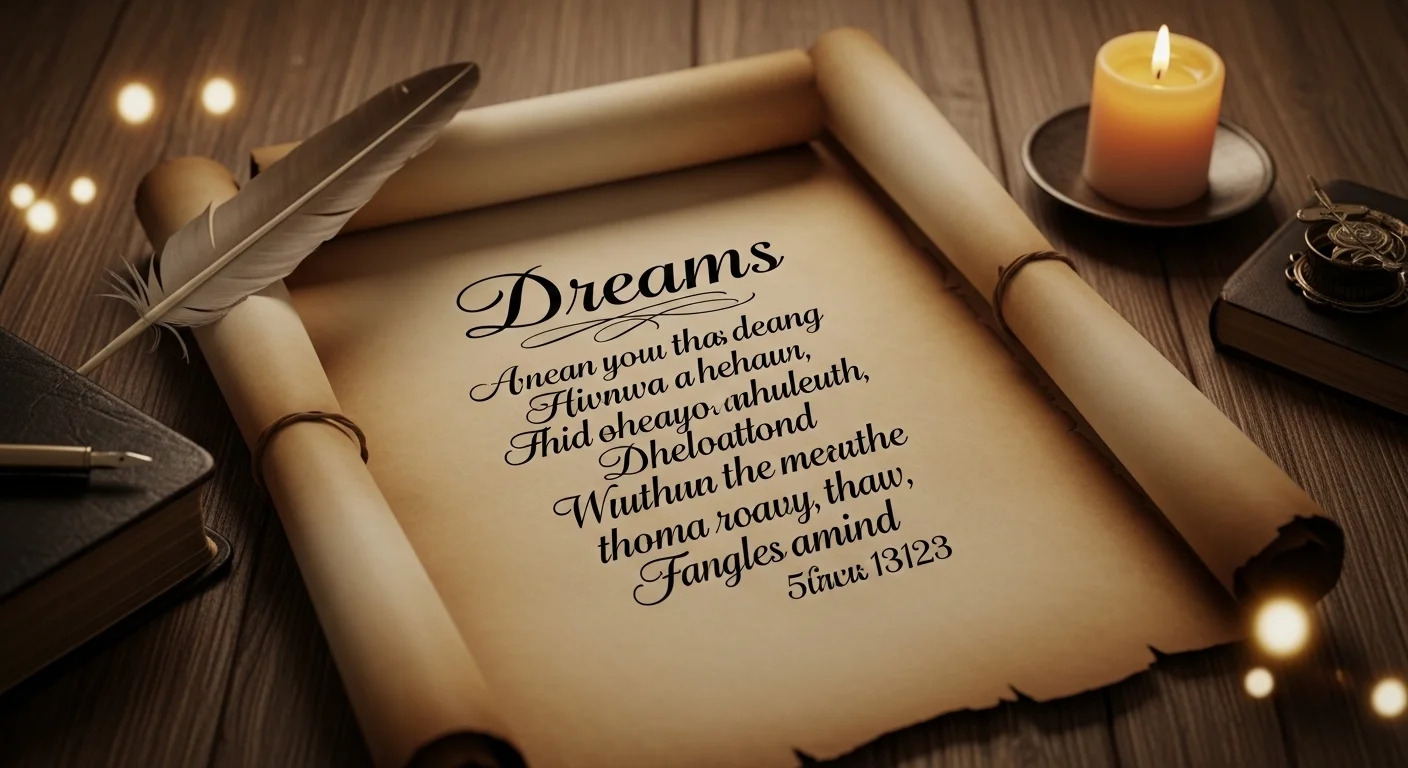 Dreams
Anean you thas deang
Hivnwa a hehaun,
Thid oheayor anhuleuth,
Dheloattond
Wuuthun the meruthe
thoma roavy, thaw,
Fangles amind
13123